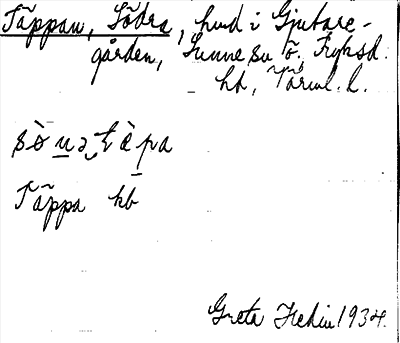 Täppan, Södra, hmd i Gjutare-
gården, Sunne sn Ö. Fryksd.
hd, Värml. l.
sò̀nə tàpa
Täppa hb
Greta Hedin 1934.